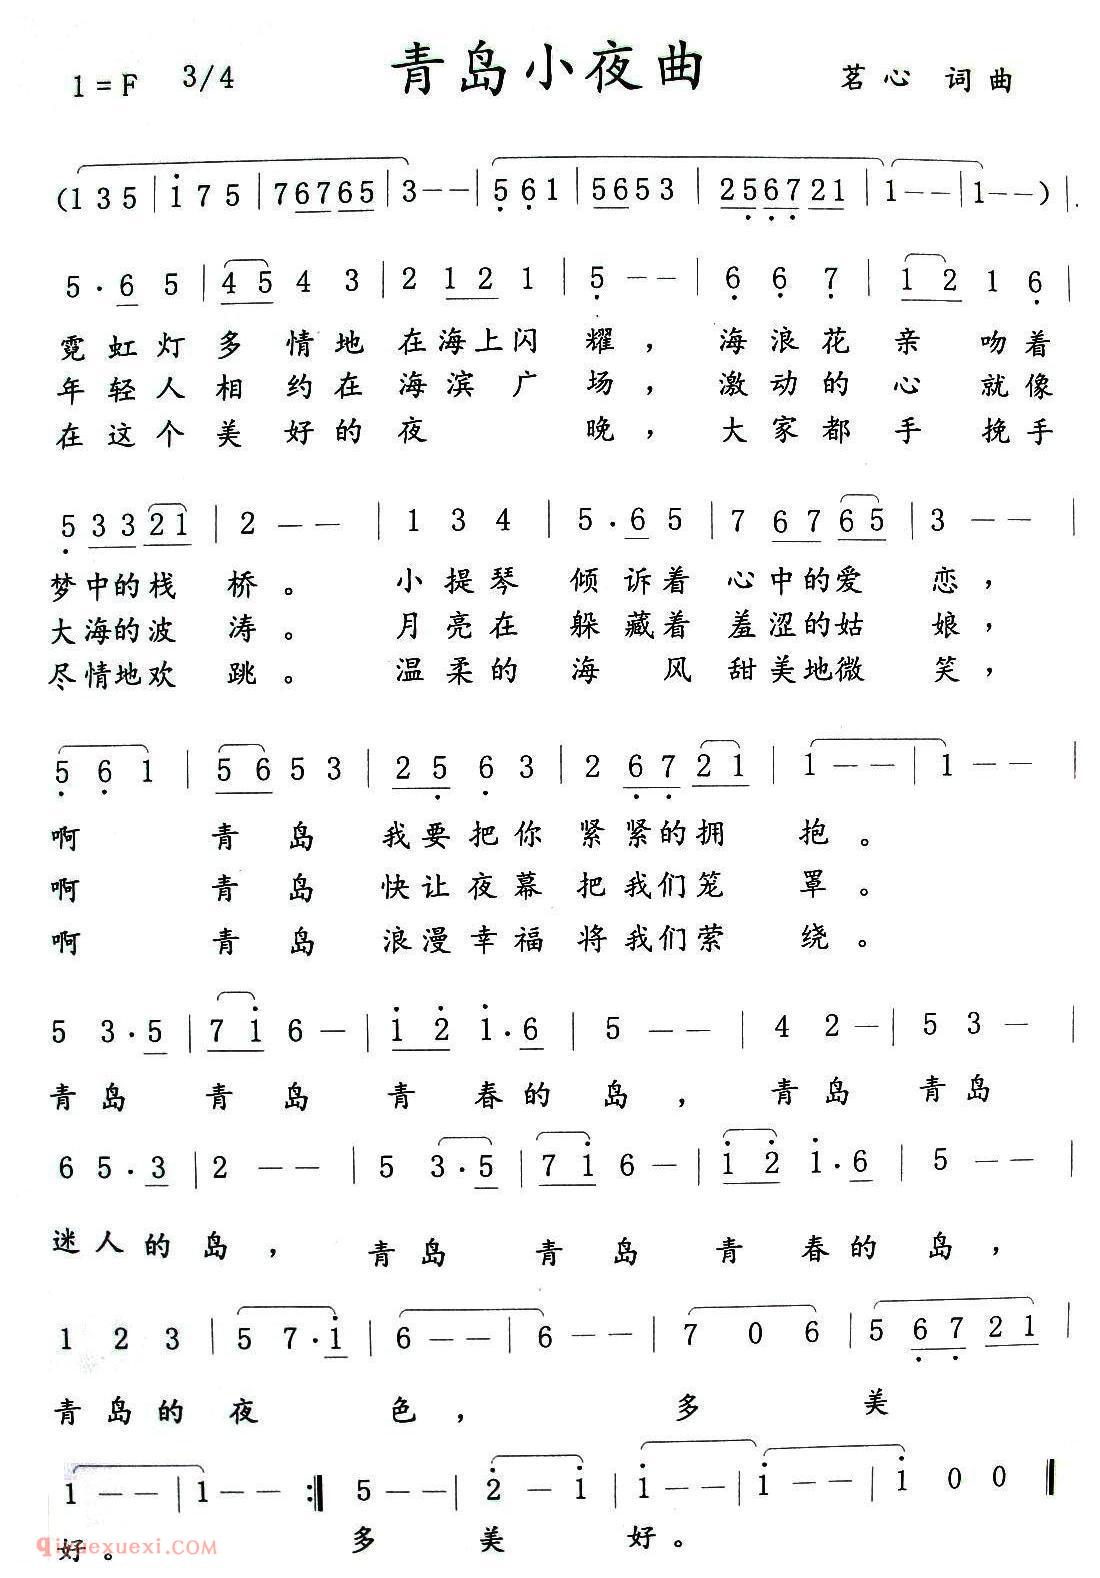 青岛小夜曲
1=F 3/4 茗心 词曲
(1 3 5 | i 7 5 | 7 6 7 6 5 | 3 - - | 5 6 1 | 5 6 5 3 | 2 5 6 7 2 1 | 1 - - | 1 - - ) |
5 · 6 5 | 4 5 4 3 | 2 1 2 1 | 5 - - | 6 6 7 | 1 2 1 6 |
霓虹灯多情地在海上闪耀，海浪花亲吻着
年轻人相约在海滨广场，激动的心就像
在这个美好的夜晚，大家都手挽手
5 3 3 2 1 | 2 - - | 1 3 4 | 5 · 6 5 | 7 6 7 6 5 | 3 - - |
梦中的栈桥。小提琴倾诉着心中的爱恋，
大海的波涛。月亮在躲藏着羞涩的姑娘，
尽情地欢跳。温柔的海风甜美地微笑，
5 6 1 | 5 6 5 3 | 2 5 6 3 | 2 6 7 2 1 | 1 - - | 1 - - |
啊 青岛 我要把你紧紧的拥抱。
啊 青岛 快让夜幕把我们笼罩。
啊 青岛 浪漫幸福将我们萦绕。
5 3 · 5 | 7 i 6 - | i 2 i · 6 | 5 - - | 4 2 - | 5 3 - |
青岛 青岛 青春的岛，青岛 青岛
6 5 · 3 | 2 - - | 5 3 · 5 | 7 i 6 - | i 2 i · 6 | 5 - - |
迷人的岛，青岛 青岛 青春的岛，
1 2 3 | 5 7 · i | 6 - - | 6 - - | 7 0 6 | 5 6 7 2 1 |
青岛的夜色，多美
1 - - | 1 - - :‖ 5 - - | 2 - i | i - - | i - - | i 0 0 ‖
好。多美好。
qiyuexuexi.com